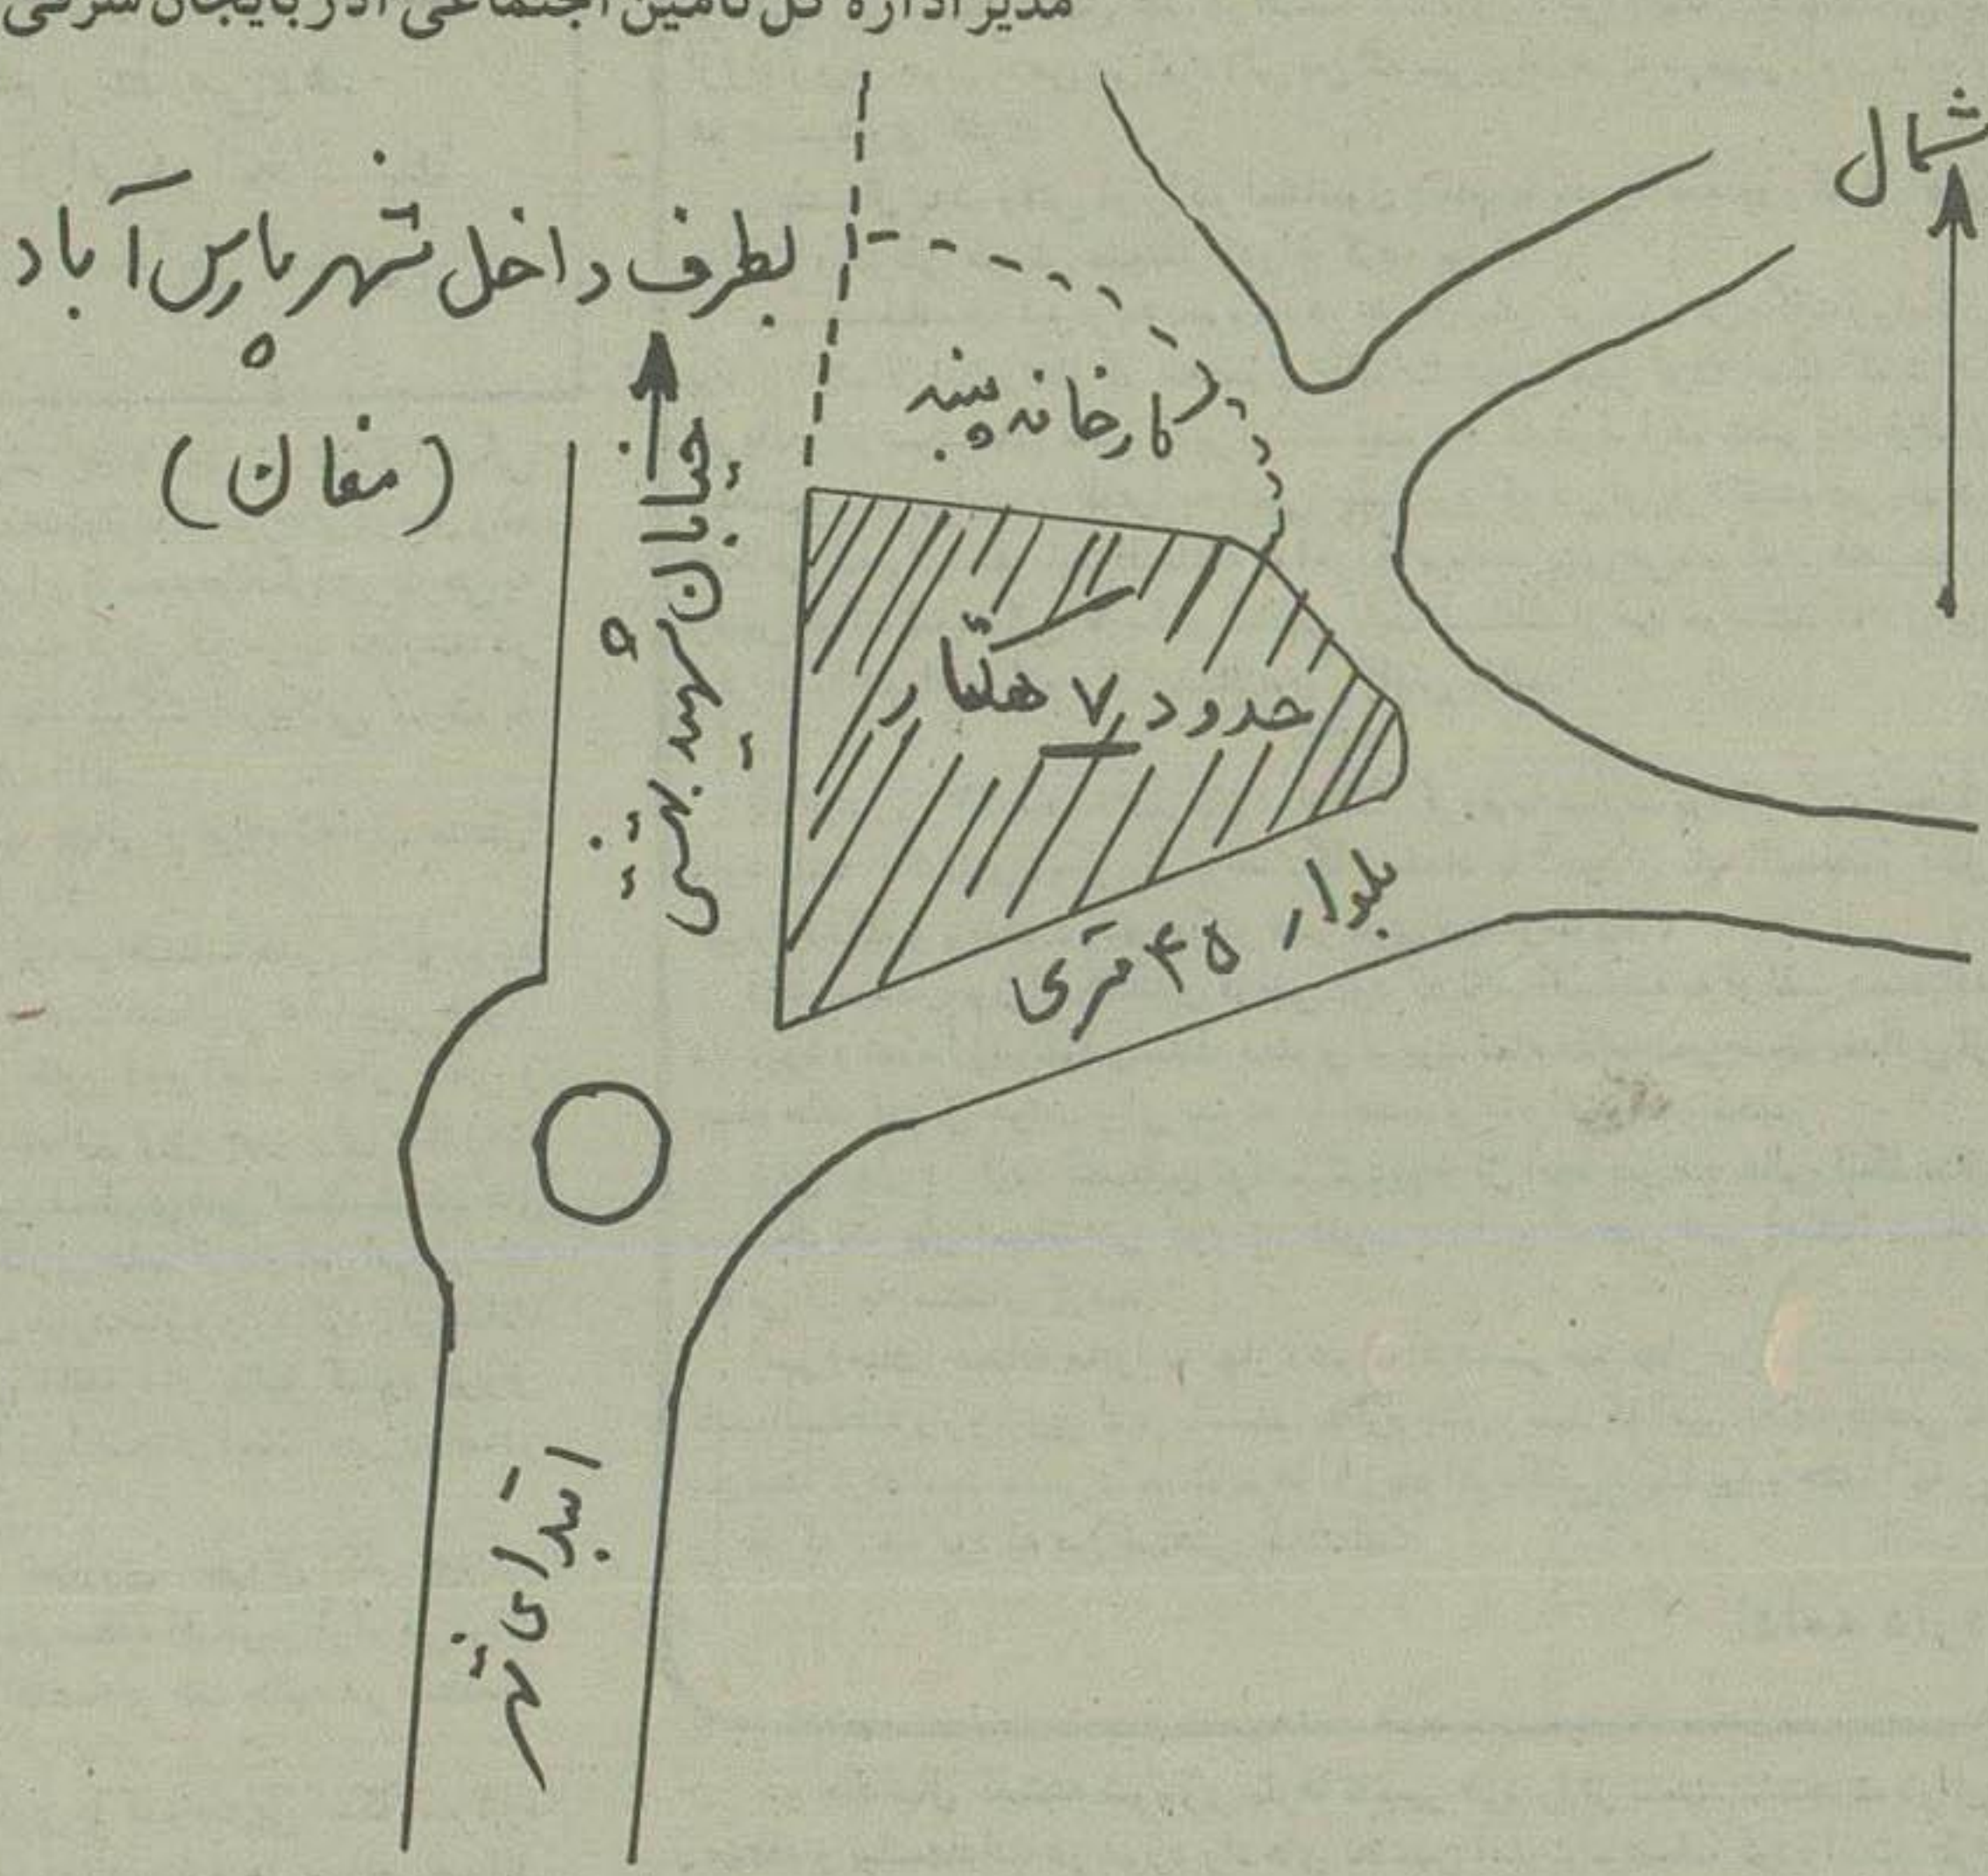 مدیر اداره کل تامین اجتماعی آذربایجان شرقی
شمال
بطرف داخل شهر پارس آباد
(مغان)
کارخانه پنبه
خیابان شهید بهشتی
حدود ۷ هکتار
بلوار ۴۵ متری
ابتدای شهر